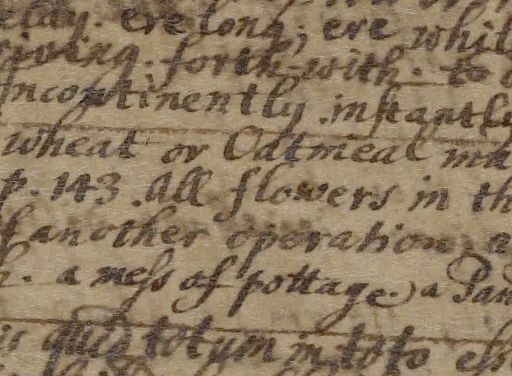 ere long; ere whil
forth-with. to
incontinently instantly
wheat or Oatmeal ma
p. 143. All flowers in th
another operation a
a mess of pottage) a Pan
quis totum in toto